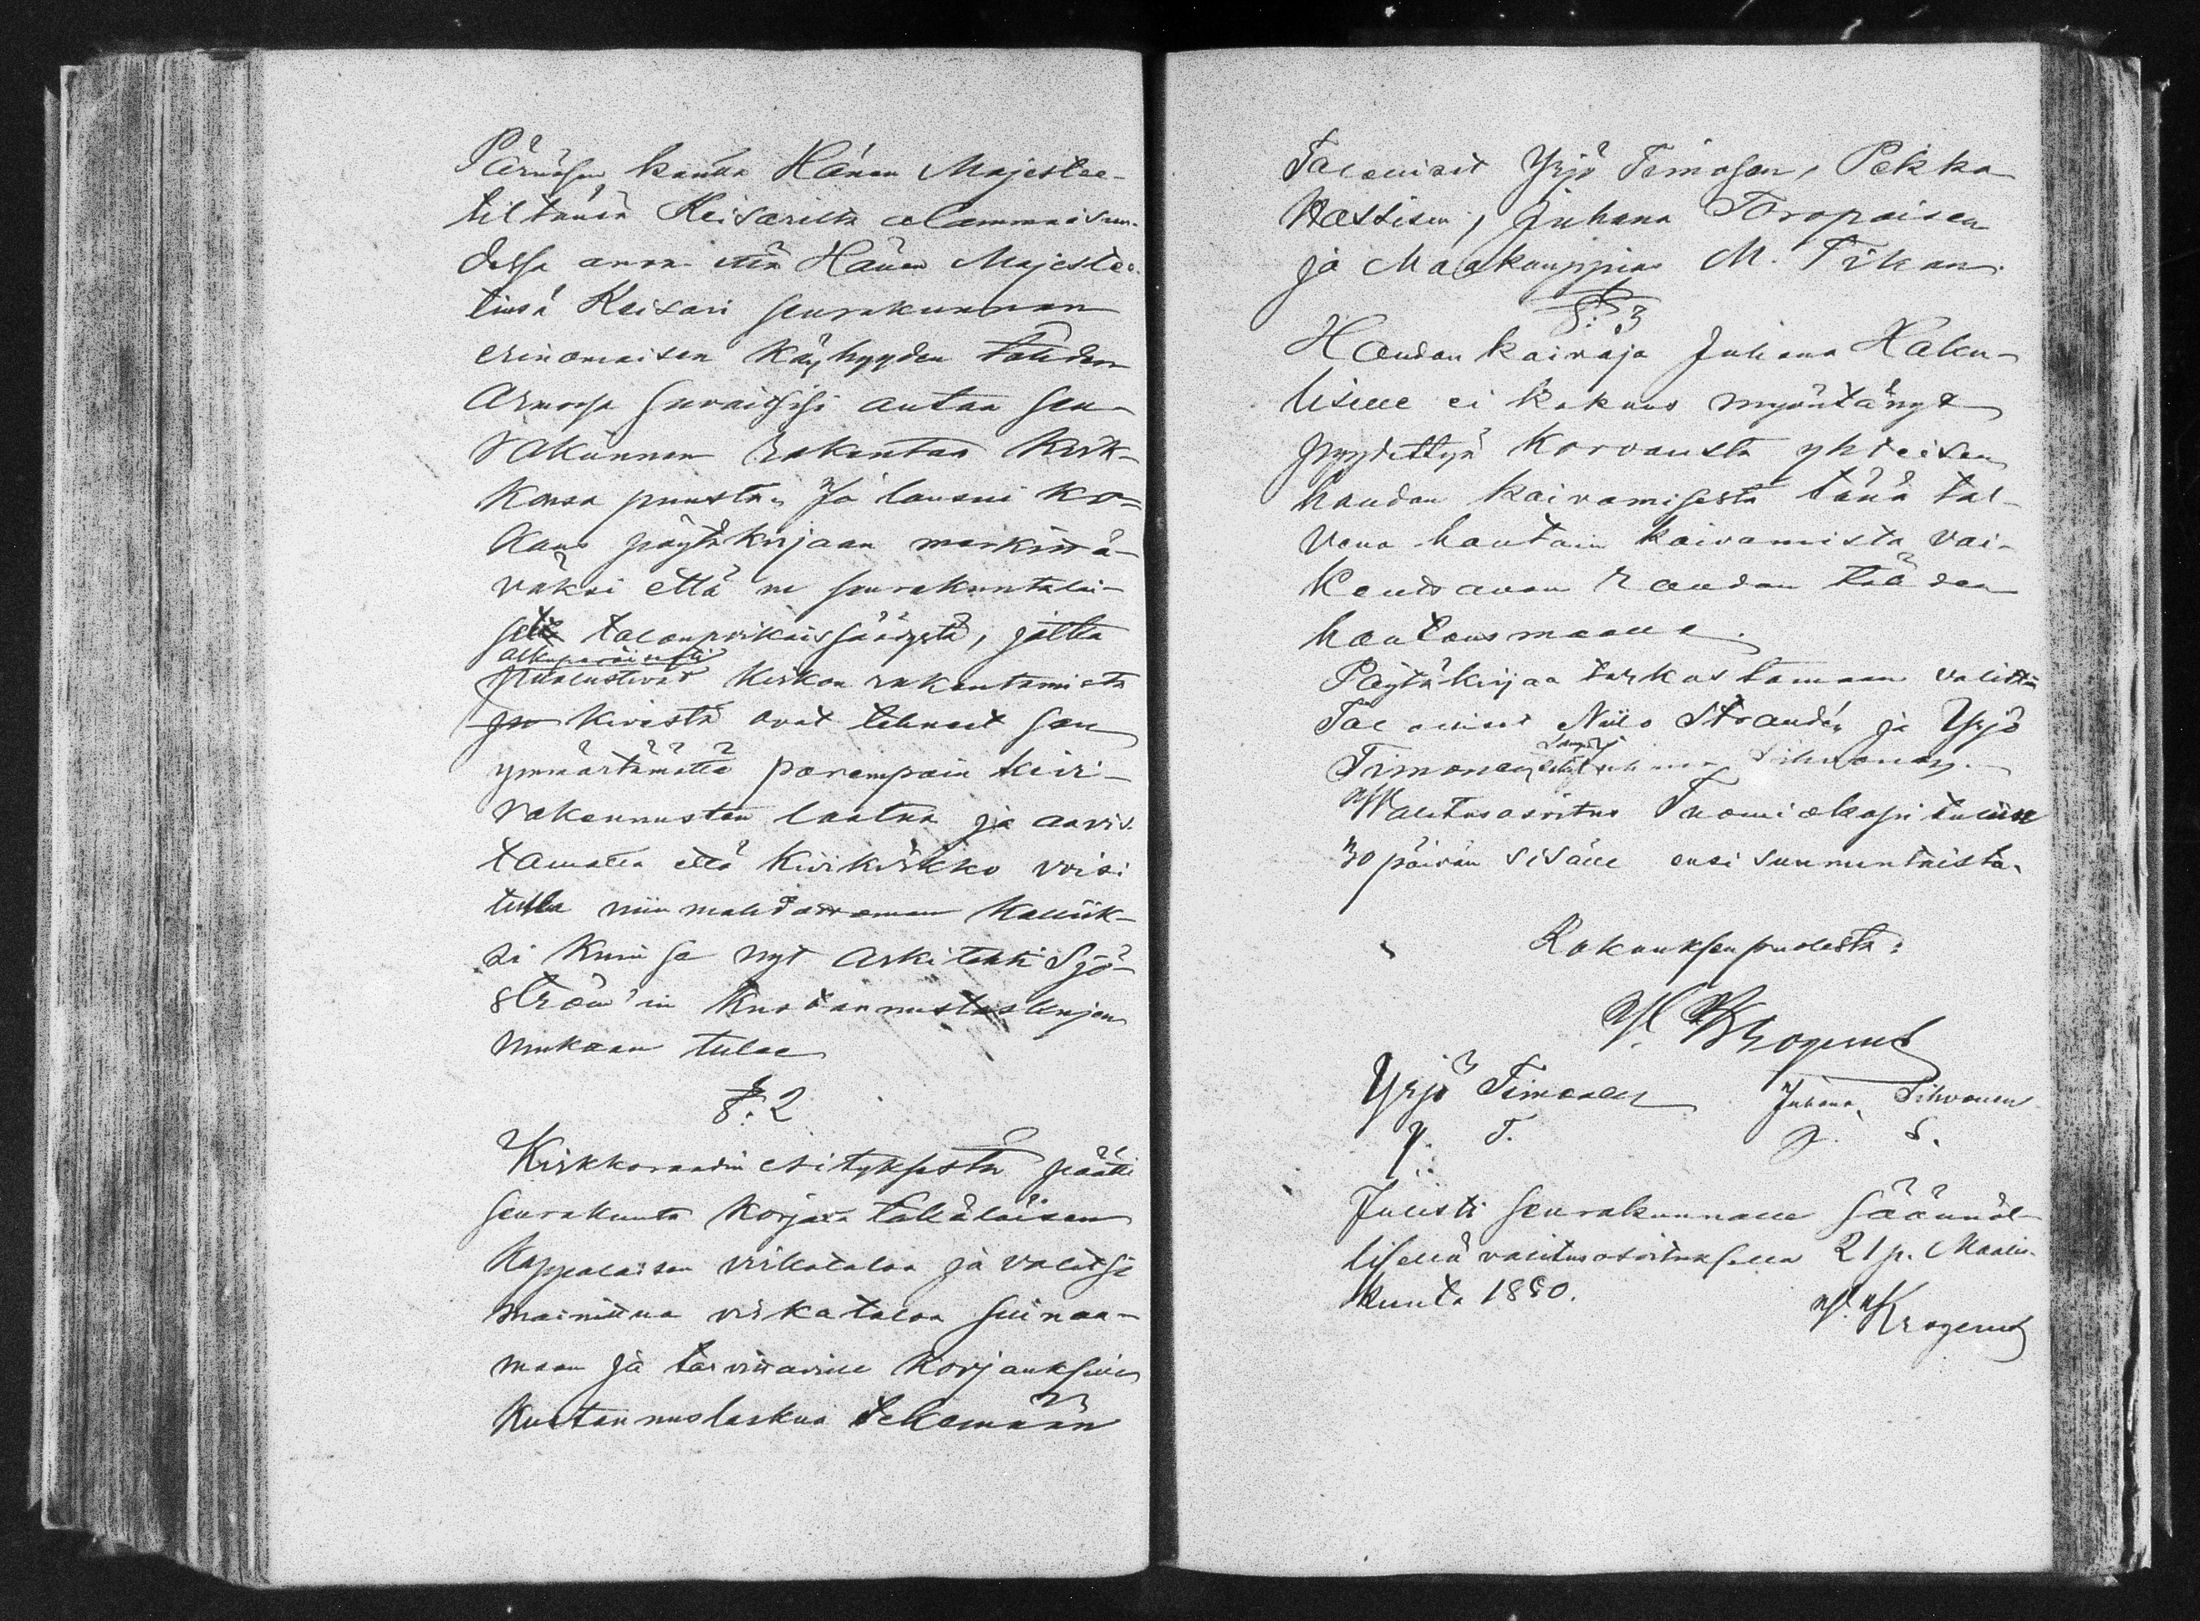 Pärnäsen kautta Hänen Majestee-
tiltänsä Keisarilta alammaisuu-
dessa anoa että Hänen Majestee-
tinsä Keisari seurakunnan
erinomaisen köyhyyden tähden
Armossa suvaitsisi antaa seu-
rakunnan rakentaa kirk-
konsa puusta. Ja lausui ko-
kous pöytäkirjaan merkittä-
väksi että ne seurakuntalai-
set talonpoikaissäädystä, jotka
alkuperäisesti
puolustivat kirkon rakentamista
kivestä ovat tehneet sen
ymmärtämättä parempain kivi-
rakennusten laatua ja aavis-
tamatta että kivikirkko voisi
tulla niin mahdottoman kalliik-
si kuin se nyt arkitehti Sjö-
ström'in kustannuslaskujen
mukaan tulee
§. 2
Kirkkoraadin esityksestä päätti
seurakunta korjata täkäläisen
kappalaisen virkataloa ja valitsi
mainittua virkataloa syinää-
mään ja tarvittaville korjauksille
kustannuslaskua tekemään
Talolliset Yrjö Timosen, Pekka
Juhana Toropaisen
ja Maakauppias M. Tikan.
§. 3
Haudan kaivaja Juhana Haku-
liselle ei kokous myöntänyt
pyydettyä korvausta yhteisen
haudan kaivamisesta tänä tal-
vena hautain kaivamista vai-
keuttavan roudan tähden
hautausmaalla.
Pöytäkirjaa tarkastamaan valittiin
Talolliset Niilo Strandén ja Yrjö
Timonen Juhana Sihvonen.
Valitusosoitus Tuomiokapituliin
30 päivän sisälle ensi sunnuntaista.
Kokouksen puolesta:
Krogerus
Yrjö Timonen Juhana Sihvonen
Y. T. J. S.
Julisti seurakunnalle säännöl-
lisellä valitusosoituksella 21 p. Maalis-
kuuta 1880.
Krogerus